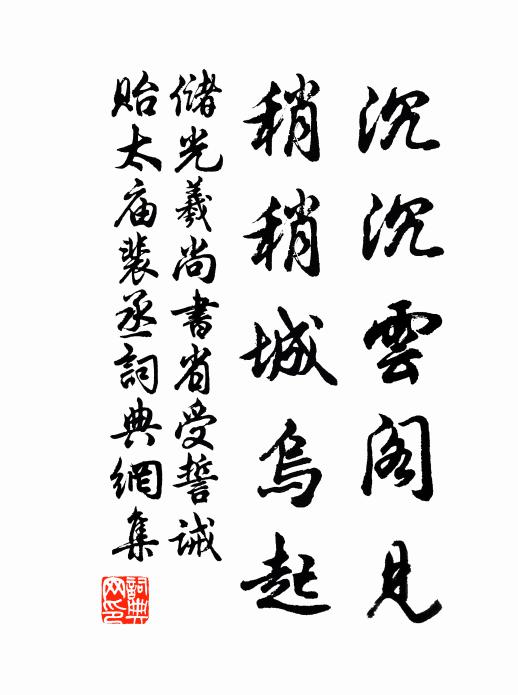 沉沉雲閣見
稍稍城烏起
儲光羲尚書省受誓誡
貽太廟裴丞詞典網集
詞典網印